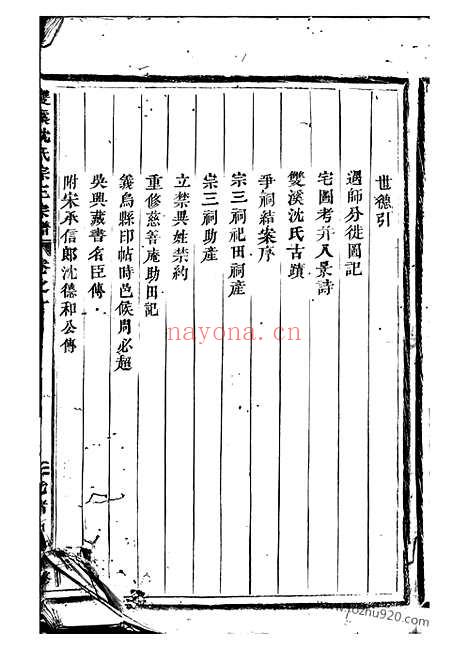 世德引
遇師分徙圖記
宅圖考并八景詩
雙溪沈氏古蹟
爭祠結案序
宗三祠祀田祠產
宗三祠助產
立禁異姓禁約
重修慈善庵助田記
義烏縣印帖時邑侯周必超
吳興藏書名臣傳
附宋承信郎沈德和公傳
雙溪沈氏宗三宗譜 卷之一
nayona.cn
www.yfozhu920.com